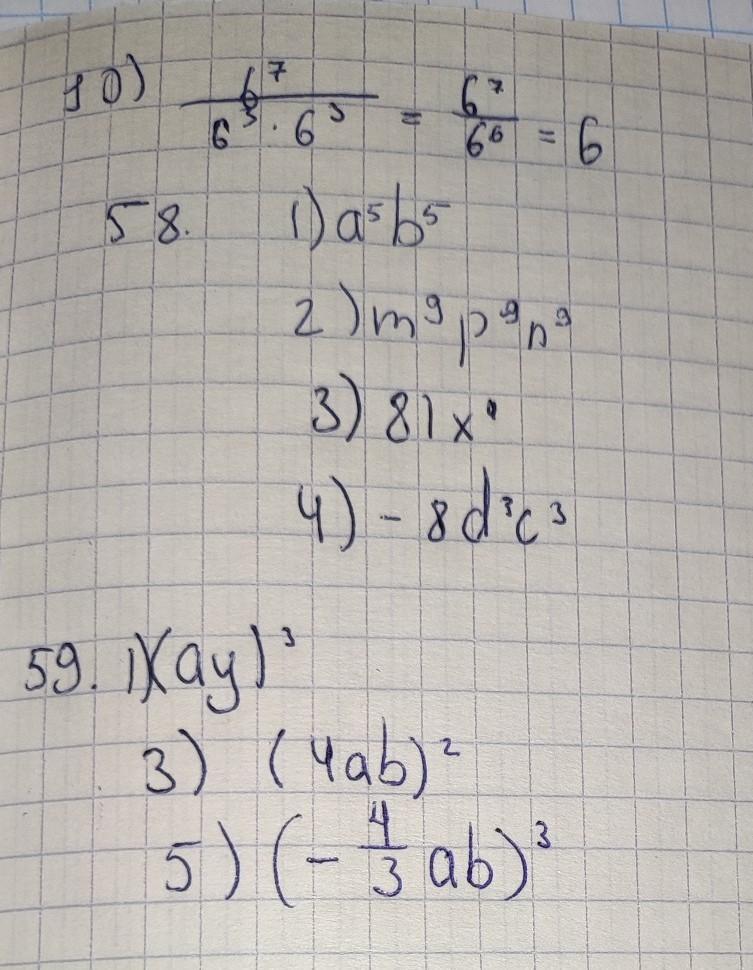 10) 6⁷ / (6³ · 6³) = 6⁷ / 6⁶ = 6
58. 1) a⁵b⁵
2) m⁹p⁹n⁹
3) 81x
4) - 8d³c³
59. 1) (ay)³
3) (4ab)²
5) (- 4/3 ab)³